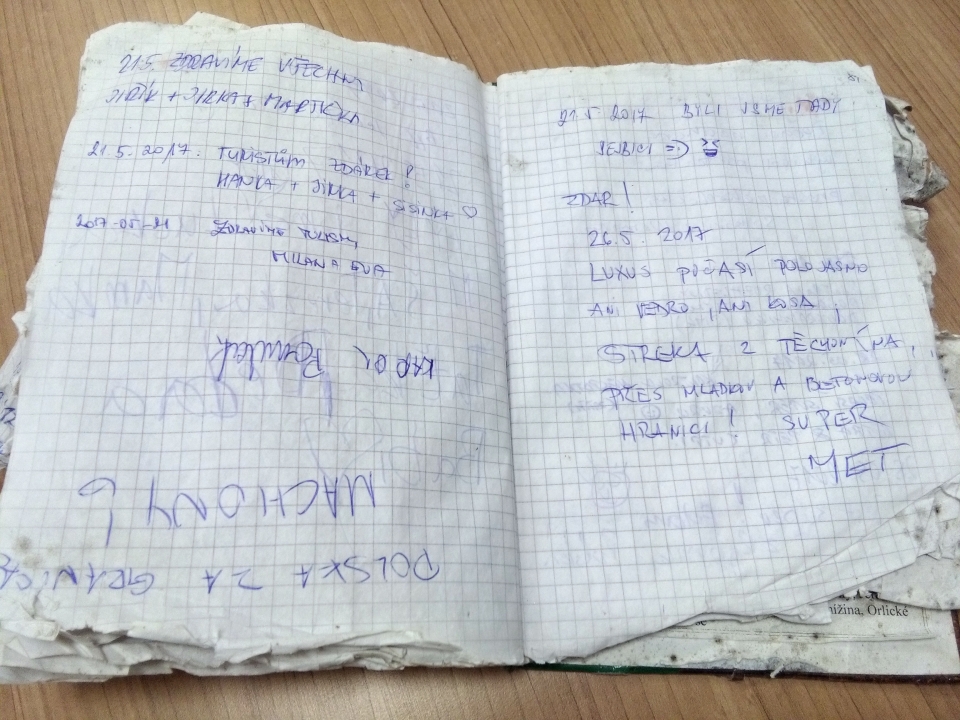 21.5. ZDRAVÍME VŠECHNY
JIŘÍK + JIRKA + MARTIČKA
21.5.2017. TURISTŮM ZDÁREK!
HANKA + JIRKA + SISINKA ♡
2017-05-21 ZDRAVÍME TURISTY
MILAN A EVA
KAROL
MACHOWY 6
POLSKA ZA GRANICĄ
21.5 2017 BYLI JSME TADY
ZDAR!
26.5. 2017
LUXUS POČASÍ POLOJASNO
ANI VEDRO, ANI KOSA,
STŘEKA Z TĚCHONÍNA,
PŘES MLADKOV A BETONOVOU
HRANICI! SUPER
MET
nížina, Orlické